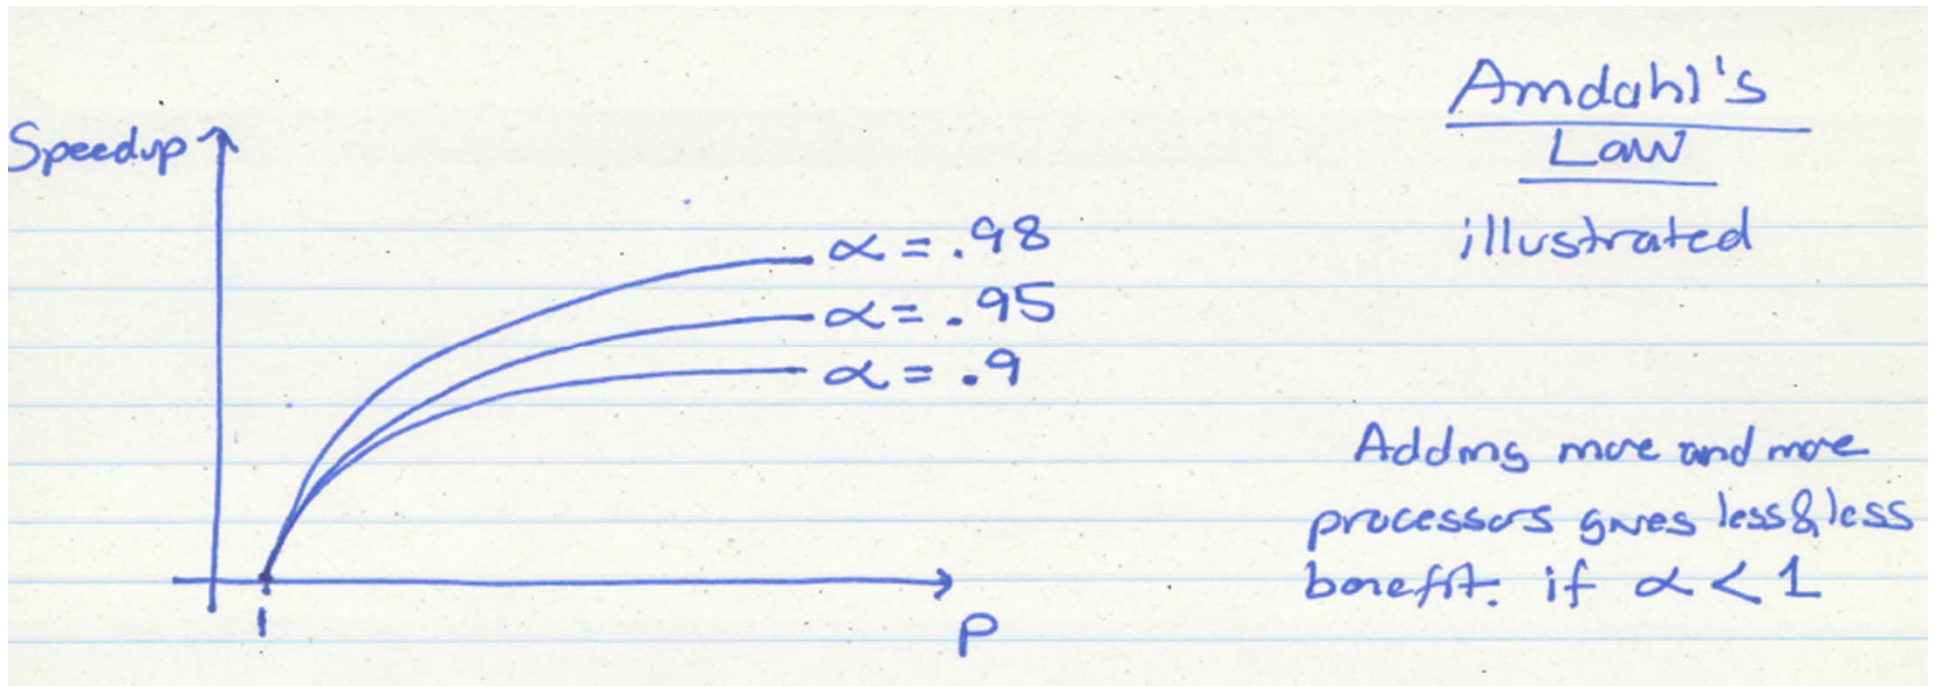 Amdahl's
Law
illustrated
Speedup
α = .98
α = .95
α = .9
1
P
Adding more and more
processors gives less & less
benefit. if α < 1